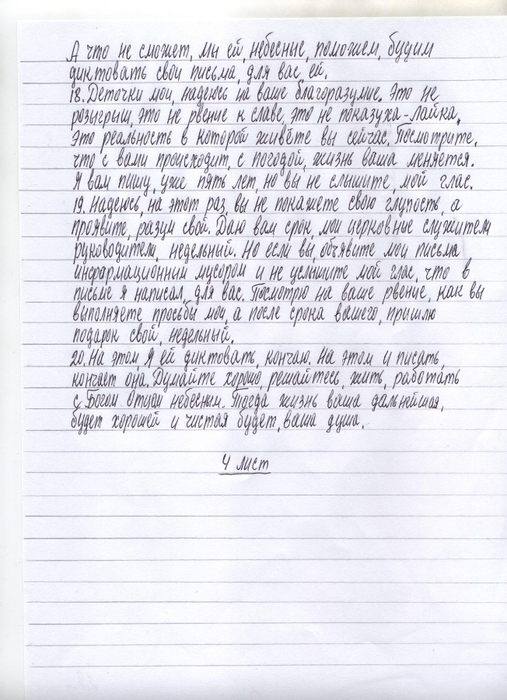 А что не сможет, мы ей, небесные, поможем, будим
диктовать свои письма, для вас, ей.
18. Деточки мои, надеюсь на ваше благоразумие. Это не
розыгрыш, это не рвение к славе, это не показуха-лайка,
Это реальность в которой живёте вы сейчас. Посмотрите,
что с вами происходит, с погодой, жизнь ваша меняется.
Я вам пишу, уже пять лет, но вы не слышите, мой глас.
19. Надеюсь, на этот раз, вы не покажете свою глупость, а
проявите, разум свой. Даю вам срок, мои церковные служители
руководители, недельный. Но если вы, объявите мои письма
информационным мусором и не услышите мой глас, что в
письме я написал, для вас. Посмотрю на ваше рвение, как вы
выполняете просьбы мои, а после срока вашего, пришлю
подарок свой, недельный.
20. На этом, Я ей диктовать, кончаю. На этом и писать,
кончает она. Думайте хорошо, решайтесь, жить, работать
с Богом Отцом небесным. Тогда жизнь ваша дальнейшая,
будет хорошей и чистая будет, ваша душа.
4 лист